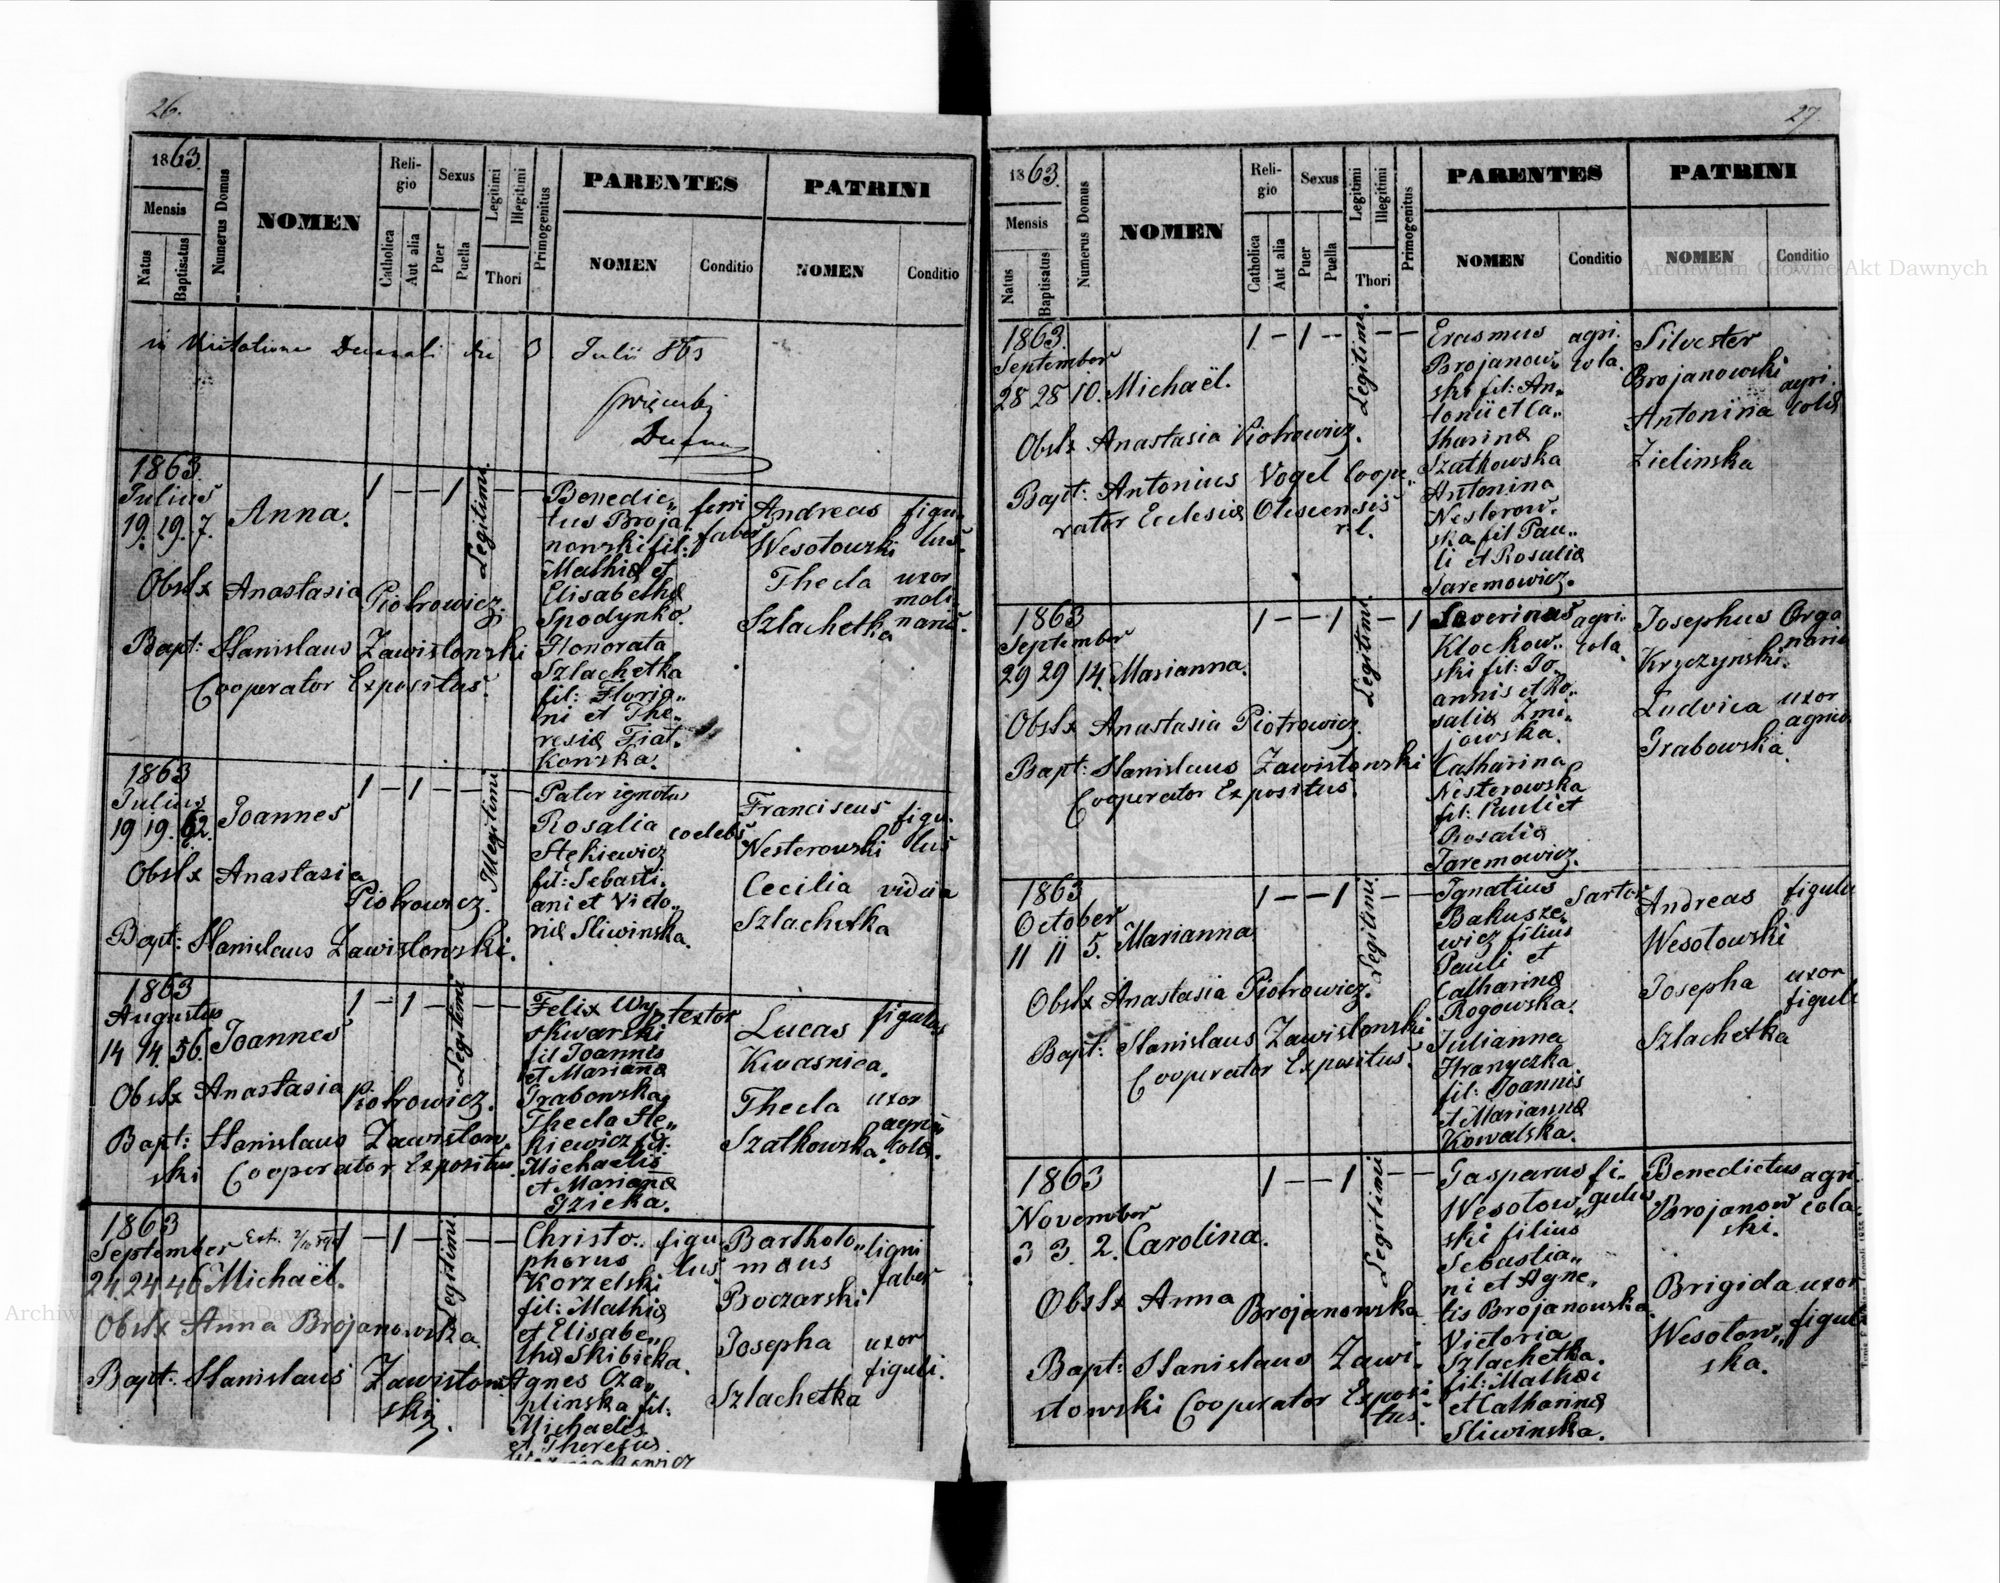 26.
1863.
Mensis
Natus
Baptisatus
Numerus Domus
NOMEN
Reli-
gio
Catholica
Aut alia
Sexus
Puer
Puella
Legitimi
Illegitimi
Thori
Primogenitus
PARENTES
NOMEN
Conditio
PATRINI
NOMEN
Conditio
in Visitatione Decanali die 3 Julii 863
1863.
Julius
19. 19. 7.
Anna.
1 — — 1 — —
Legitimi.
Obstx Anastasia Piotrowicz.
Bapt: Stanislaus Zawistowski
Cooperator Expositus.
Benedic„
tus Broja„
nowski fil:
Mathiæ et
Elisabethæ
Spodynko.
Honorata
Szlachetka
fil: Floria„
ni et The„
resiæ Fiał„
kowska.
ferri
faber
Andreas
Wesołowski
Thecla
Szlachetka
figu„
lus.
uxor
moli„
naris.
1863
Julius
19 19. 62.
Joannes
1 — 1 — —
Illegitimi
Obstx Anastasia
Piotrowicz.
Bapt: Stanislaus Zawistowski.
Pater ignotus
Rosalia
Stękiewicz
fil: Sebasti„
ani et Victo„
riæ Sliwinska.
coelebs
Franciscus
Nesterowski
Cecilia
Szlachetka
figu„
lus
vidua
1863
Augustus
14 14. 56.
Joannes
1 — 1 — — —
Legitimi.
Obstx Anastasia Piotrowicz.
Bapt: Stanislaus Zawistow„
ski Cooperator Expositus.
Felix Wy„
skwarski
fil Joannis
et Marianæ
Grabowska
Thecla Ste„
kiewicz fil:
Michaelis
et Marianæ
Gzicka.
textor
Lucas
Kwasnica.
Thecla
Szatkowska.
figulus
uxor
agri„
colæ.
1863
September
24. 24. 46
Michaël.
1 — 1 — — —
Legitimi.
Obstx Anna Brojanowska
Bapt: Stanislaus Zawistow„
ski
Christo„
phorus
Korzelski
fil: Mathiæ
et Elisabe„
thæ Skibicka.
Agnes Cza„
plinska fil:
Michaelis
et Theresus
figu„
lus
Bartholo„
maus
Boczarski
Josepha
Szlachetka
ligni
faber
uxor
figuli.
27.
1863.
Mensis
Natus
Baptisatus
Numerus Domus
NOMEN
Reli-
gio
Catholica
Aut alia
Sexus
Puer
Puella
Legitimi
Illegitimi
Thori
Primogenitus
PARENTES
NOMEN
Conditio
PATRINI
NOMEN
Conditio
1863.
September
28 28 10.
Michaël.
1 — 1 — — —
Legitimi.
Obstx Anastasia Piotrowicz.
Bapt: Antonius Vogel Coope„
rator Ecclesiæ Olescensis
r.l.
Erasmus
Brojanow„
ski fil: An„
tonii et Ca„
tharinæ
Szatkowska
Antonina
Nesterow„
ska fil Pau„
li et Rosaliæ
Jaremowicz.
agri„
cola.
Silvester
Brojanowski
Antonina
Zielinska
agri„
colæ
1863
September
29 29 14.
Marianna.
1 — — 1 — 1
Legitimi.
Obstx Anastasia Piotrowicz
Bapt: Stanislaus Zawistowski
Cooperator Expositus.
Severinus
Klochow„
ski fil: Jo„
annis et Ro„
saliæ Zmi„
jowska.
Catharina
Nesterowska
fil: Pauli et
Rosaliæ
Jaremowicz.
agri„
cola
Josephus
Kryczynski.
Ludvica
Grabowska
Orga
narius
uxor
agrico
1863
October
11 11 5.
Marianna
1 — — 1 — —
Legitimi.
Obstx Anastasia Piotrowicz.
Bapt: Stanislaus Zawistowski
Cooperator Expositus.
Ignatius
Bakusze„
wicz filius
Pauli et
Catharinæ
Rogowska.
Julianna
Hranyczka
fil: Joannis
et Mariannæ
Kowalska.
Sartor
Andreas
Wesołowski
Josepha
Szlachetka
figulu
uxor
figuli
1863
November
3 3. 2.
Carolina.
1 — — 1 — —
Legitimi
Obstx Anna Brojanowska
Bapt: Stanislaus Zawi„
stowski Cooperator Exposi„
tus.
Gasparus
Wesołow„
ski filius
Sebastia„
ni et Agne„
tis Brojanowska
Victoria
Szlachetka.
fil: Mathæi
et Catharinæ
Sliwinska.
fi„
gulus
Benedictus
Brojanow
ski.
Brigida
Wesołow„
ska.
agri„
cola
uxor
figuli
Archiwum Główne Akt Dawnych
Archiwum Główne Akt Dawnych